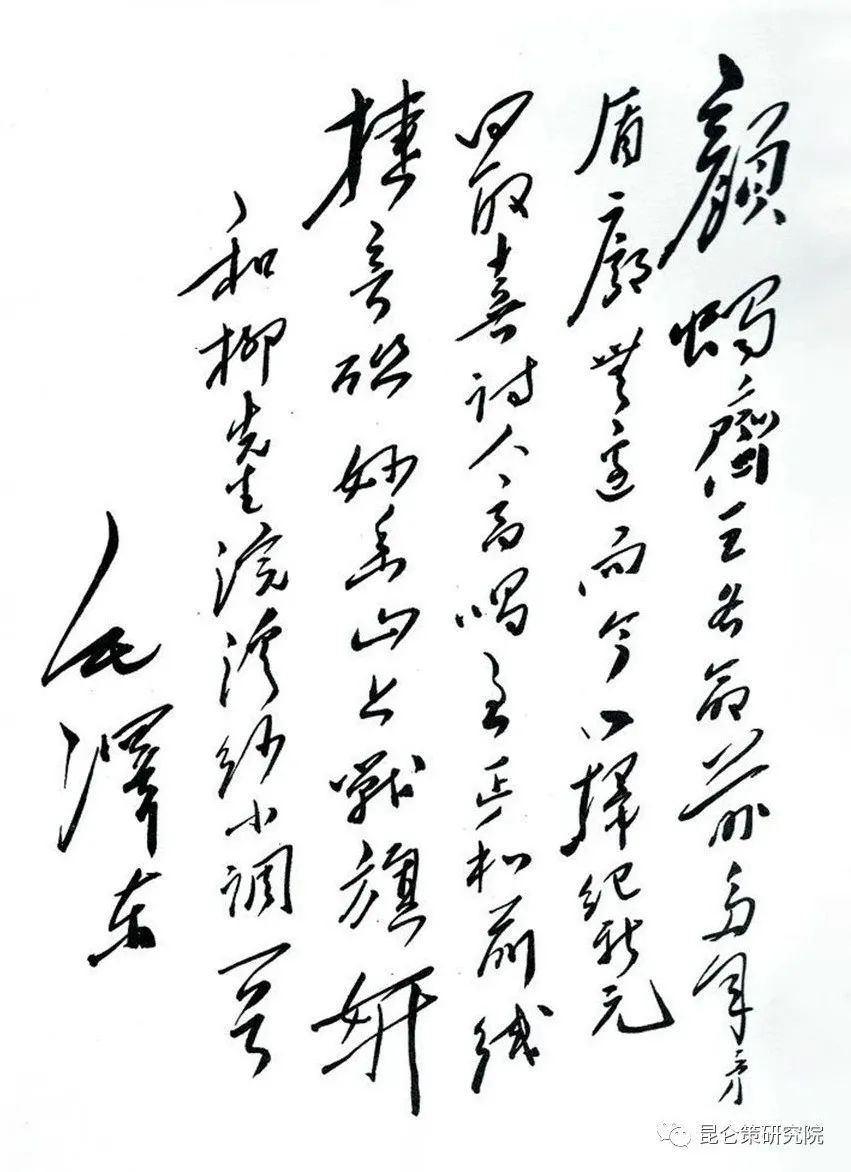 顏斶齊王各命前多年矛
盾廓無邊而今一掃紀新元
最喜詩人高唱至正和前綫
捷音联妙香山上戰旗妍
和柳先生浣溪紗小調一首
毛澤东
昆仑策研究院